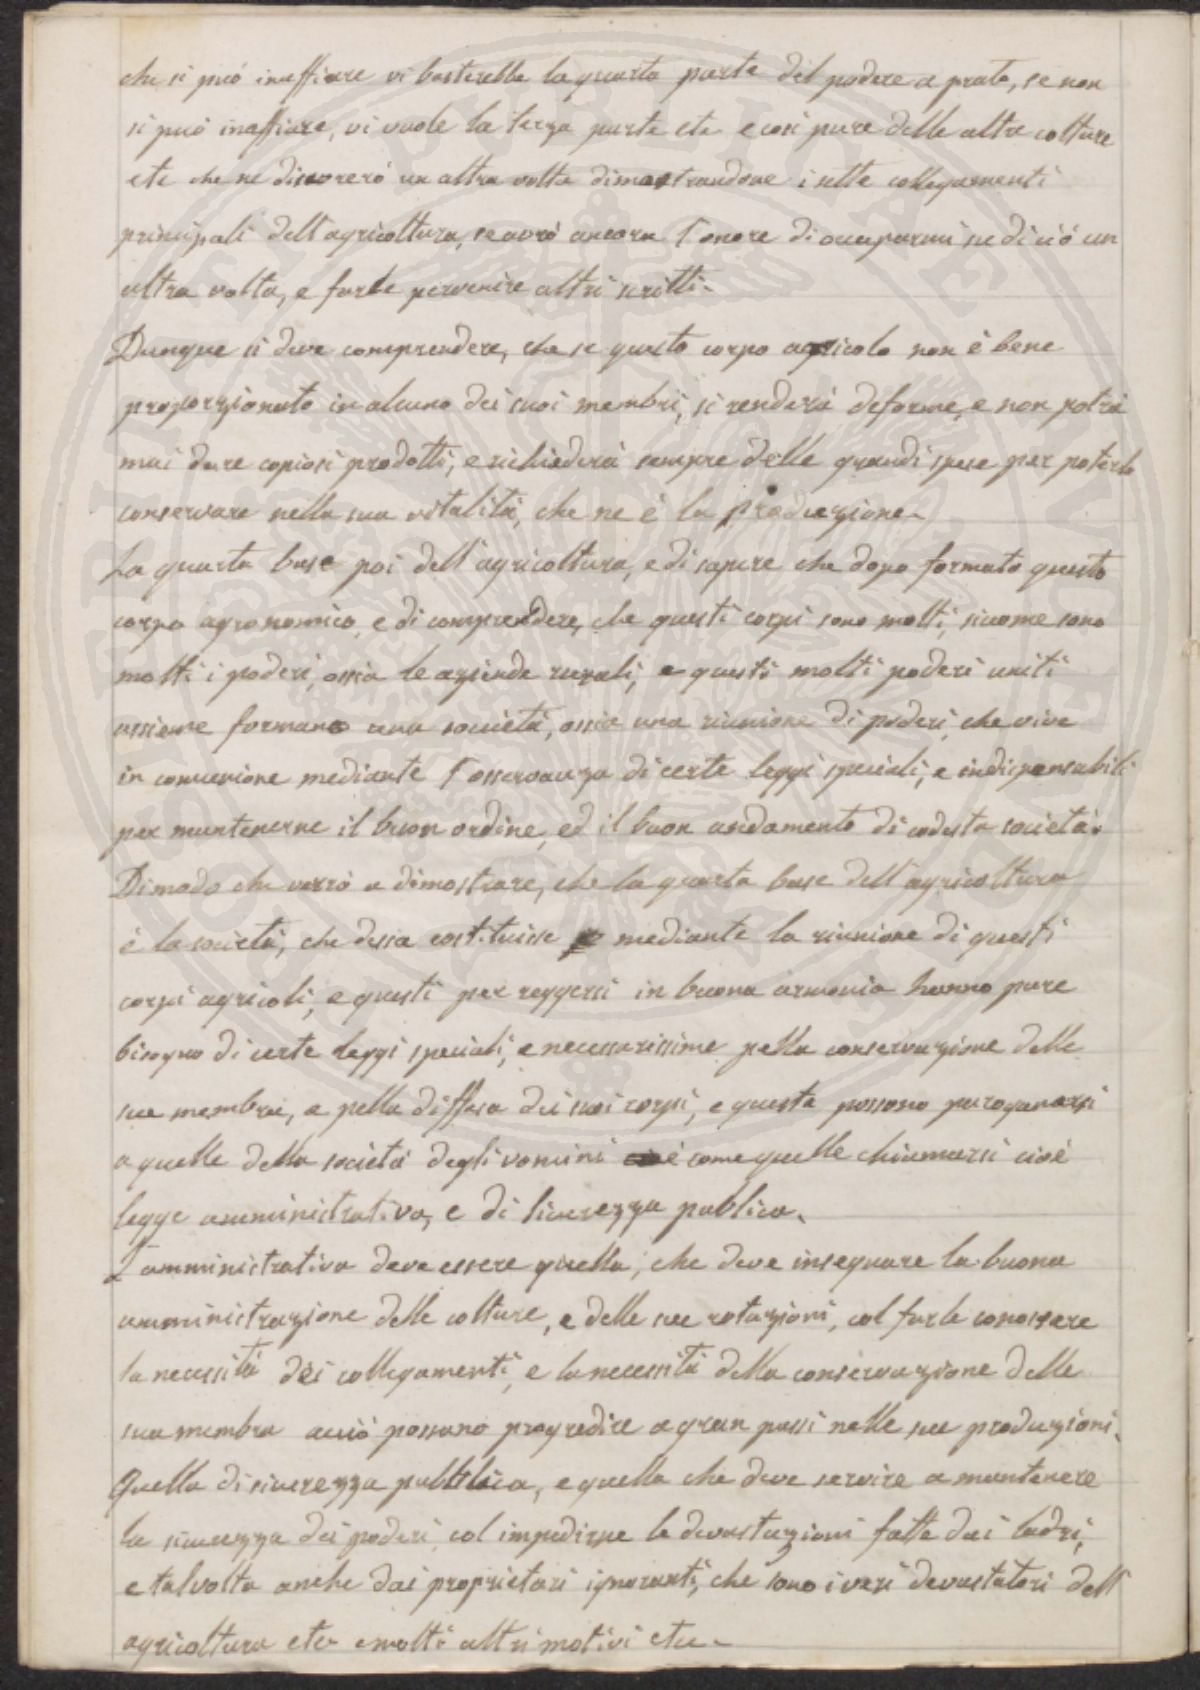 che si può inaffiare vi basterebbe la quarta parte del podere a prato, se non
si può inaffiare, vi vuole la terza parte etc e così pure delle altre colture
etc che ne discorerò un altra volta dimostrandone i sette collegamenti
principali dell'agricoltura, se avrò ancora l'onore di ocuparmi di ciò un
altra volta, e farle pervenire altri scritti.
Dunque si deve comprendere, che se questo corpo agricolo non è bene
proporzionato in alcuno dei suoi membri, si renderà deforme, e non potrà
mai dare copiosi prodotti, e richiederà sempre delle grandi spese per poterlo
conservare nella sua vitalità, che ne è la produzione.
La quarta base poi dell'agricoltura, e di sapere che dopo formato questo
corpo agronomico, e di comprendere, che questi corpi sono molti, sicome sono
molti i poderi, ossia le aziende rurali, e questi molti poderi uniti
assieme formano una società, ossia una riunione di poderi, che vive
in comunione mediante l'osservanza di certe leggi speciali, e indispensabili
per mantenerne il buon ordine, ed il buon andamento di codesta società.
Dimodo che verrò a dimostrare, che la quarta base dell'agricoltura
è la società, che dessa costituisse mediante la riunione di questi
corpi agricoli, e questi per reggersi in buona armonia hanno pure
bisogno di certe leggi speciali, e necessarissime pella conservazione delle
sue membra, e pella diffesa dei suoi corpi, e queste possono paragonarsi
a quelle della società degli uomini e come quelle chiamarsi cioè
legge amministrativa, e di sicurezza publica.
L'amministrativa deve essere quella, che deve insegnare la buona
amministrazione delle colture, e delle sue rotazioni, col farle conossere
la necessità dei collegamenti, e la necessità della conservazione delle
sua membra acciò possano progredire a gran passi nelle sue produzioni.
Quella di sicurezza pubblica, e quella che deve servire a mantenere
la sicurezza dei poderi col impedirne le devastazioni fatte dai ladri,
e talvolta anche dai proprietari ignoranti, che sono i veri devastatori dell
agricoltura etc e molti altri motivi etc.